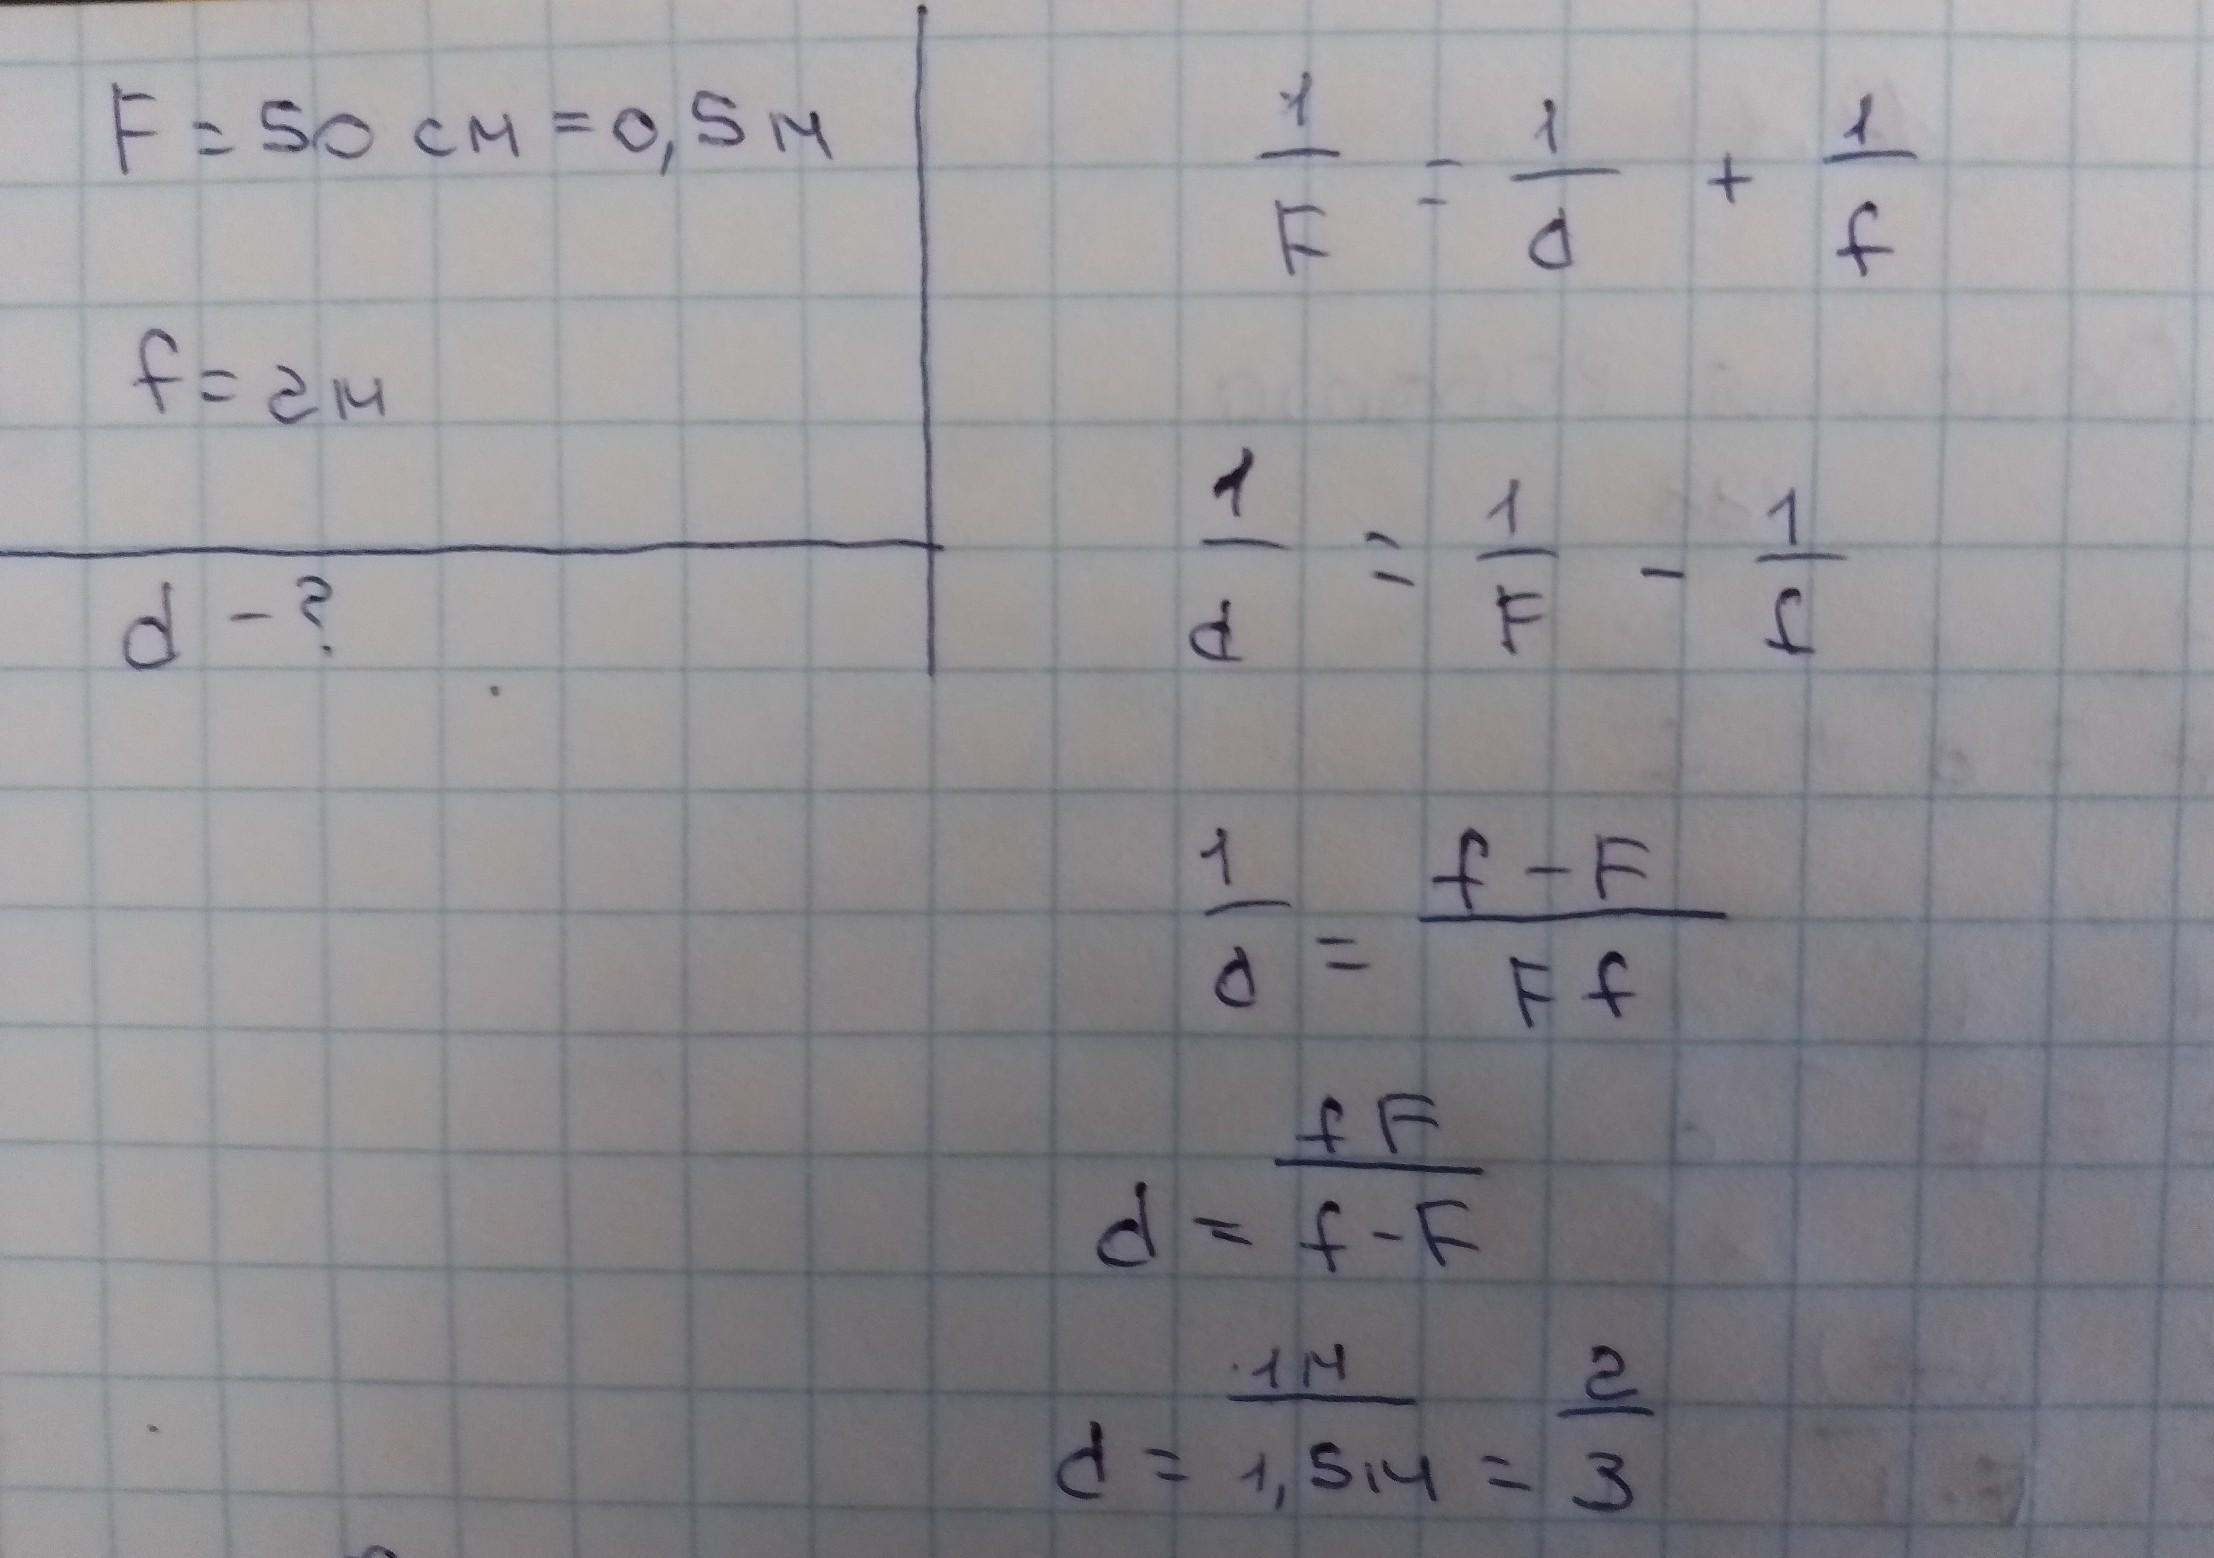 F = 50 см = 0,5 м
f = 2 м
d - ?
1/F = 1/d + 1/f
1/d = 1/F - 1/f
1/d = (f - F)/(F f)
d = (f F)/(f - F)
d = 1м/1,5м = 2/3